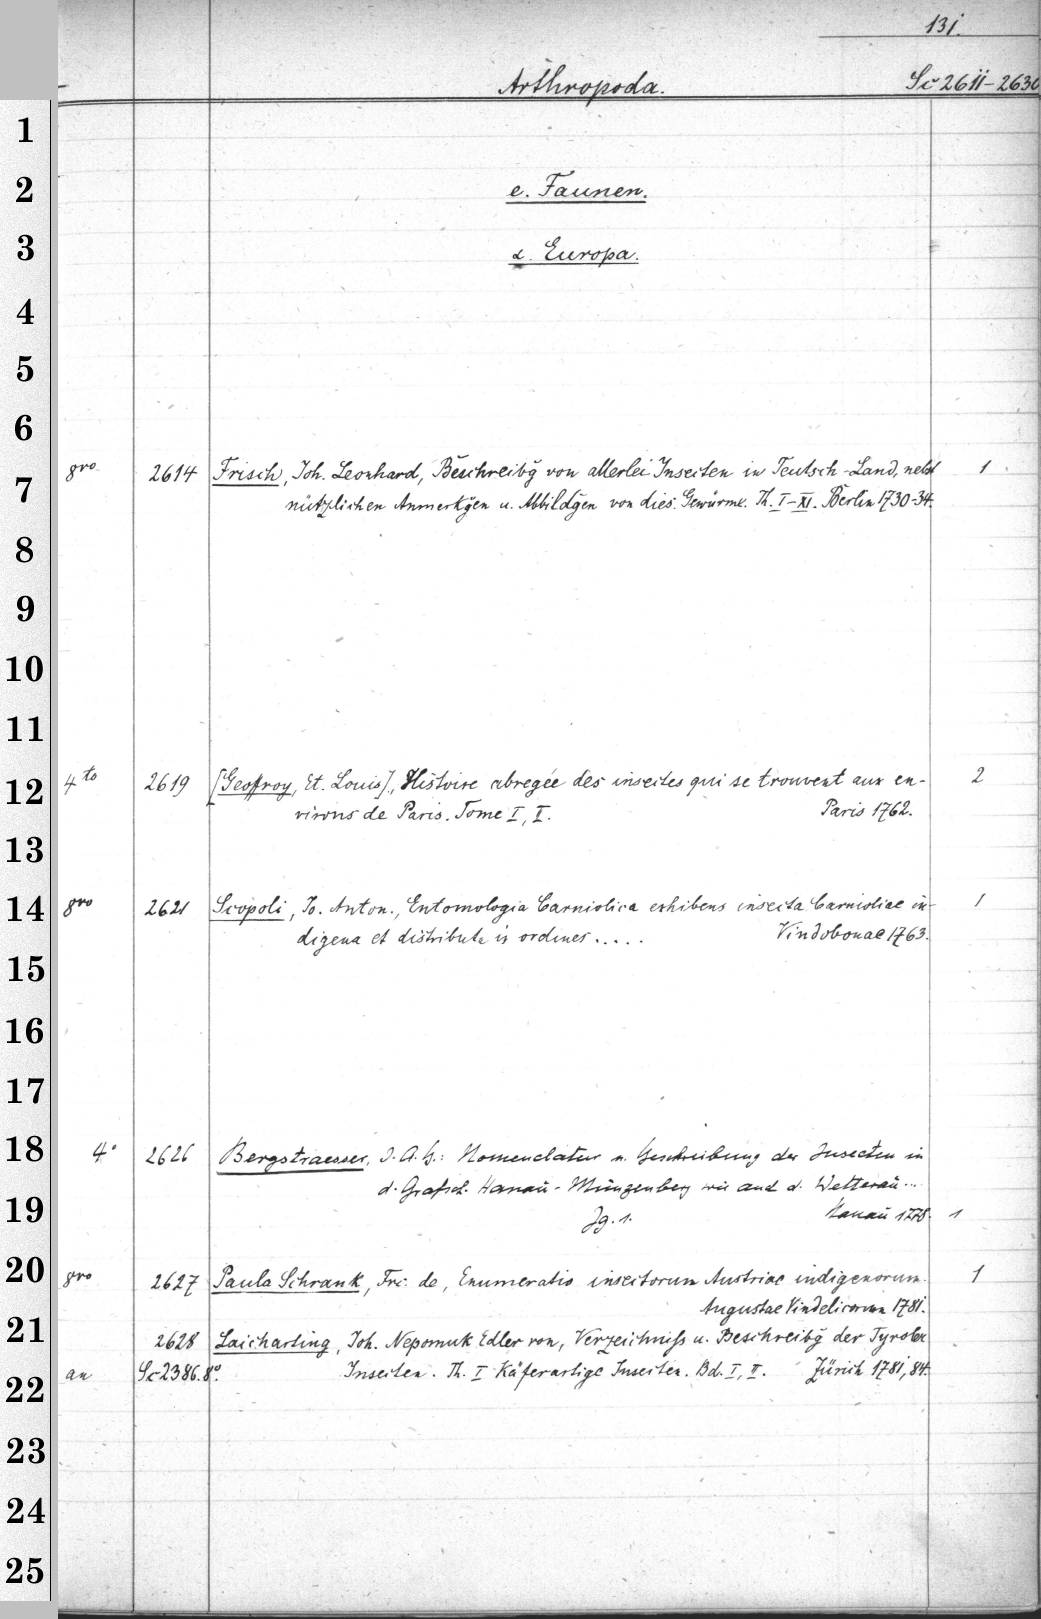 131.
Arthropoda. Sc 2611-2630
1
2 e. Faunen.
3 α. Europa.
4
5
6
7 8vo 2614 Frisch, Joh. Leonhard, Beschreibg̃ von allerlei Insecten in Teutsch-Land, nebst 1
nützlichen Anmerkg̃en u. Abbildg̃en von dies. Gewürme. Th. I-XI. Berlin 1730-34.
8
9
10
11
12 4to 2619 [Geoffroy, Et. Louis], Histoire abregée des insectes qui se trouvent aux en- 2
virons de Paris. Tome I, II. Paris 1762.
13
14 8vo 2621 Scopoli, Jo. Anton., Entomologia Carniolica exhibens insecta Carnioliae in- 1
digena et distributa in ordines ..... Vindobonae 1763.
15
16
17
18 4° 2626 Bergstraesser, J. A. B.: Nomenclatur u. Beschreibung der Insecten in
d. Grafsch. Hanau-Münzenberg wie auch d. Wetterau...
19 Jg. 1. Hanau 1778. 1
20 8vo 2627 Paula Schrank, Frc. de, Enumeratio insectorum Austriae indigenorum. 1
Augustae Vindelicorum 1781.
21 2628 Laicharting, Joh. Nepomuk Edler von, Verzeichniss u. Beschreibg̃ der Tyroler
22 an Sc 2386.8° Insecten. Th. I Käferartige Insecten. Bd. I, II. Zürich 1781, 84.
23
24
25